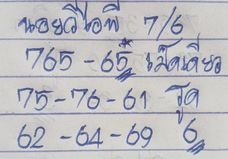 นอยวีไอพี 7/6
765-65* เม็ดเดียว
75-76-61 รูด
62-64-69 6